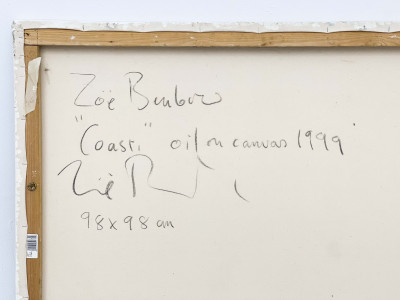 Zoë Benbow
"Coast." oil on canvas 1999
Zoë
98 x 98 cm